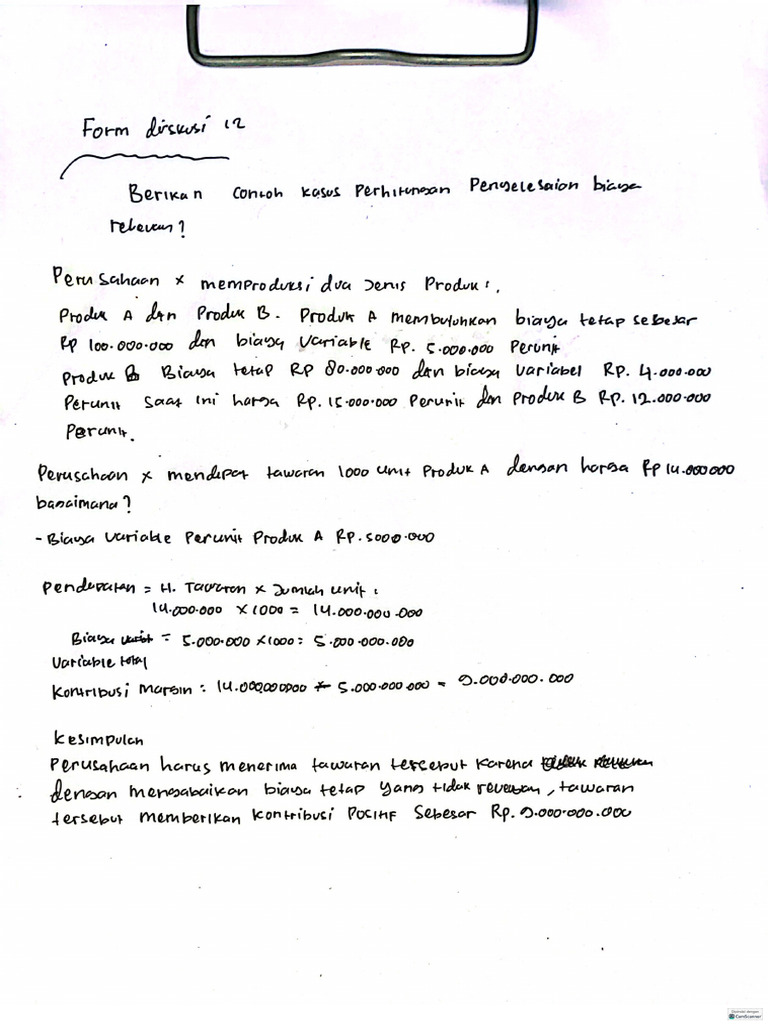 Form diskusi 12
Berikan contoh kasus Perhitungan Penyelesaian biaya
relevan?
Perusahaan x memproduksi dua Jenis Produk:.
Produk A dan Produk B. Produk A membutuhkan biaya tetap sebesar
Rp 100.000.000 dan biaya Variable Rp. 5.000.000 Perunit
Produk B Biaya tetap Rp 80.000.000 dan biaya variabel Rp. 4.000.000
Perunit saat ini harga Rp. 15.000.000 Perunit dan Produk B Rp. 12.000.000
Perunit.
Perusahaan x mendapat tawaran 1000 unit Produk A dengan harga Rp 14.000000
bagaimana?
- Biaya Variable Perunit Produk A Rp. 5000.000
Pendapatan = H. Tawaran x Jumlah unit :
14.000.000 x 1000 = 14.000.000.000
Biaya = 5.000.000 x 1000 = 5.000.000.000
Variable total
Kontribusi Margin : 14.000.000.000 - 5.000.000.000 = 9.000.000.000
Kesimpulan
Perusahaan harus menerima tawaran tersebut karena
dengan mengabaikan biaya tetap yang tidak revevan, tawaran
tersebut memberikan kontribusi Positif Sebesar Rp. 9.000.000.000
CamScanner